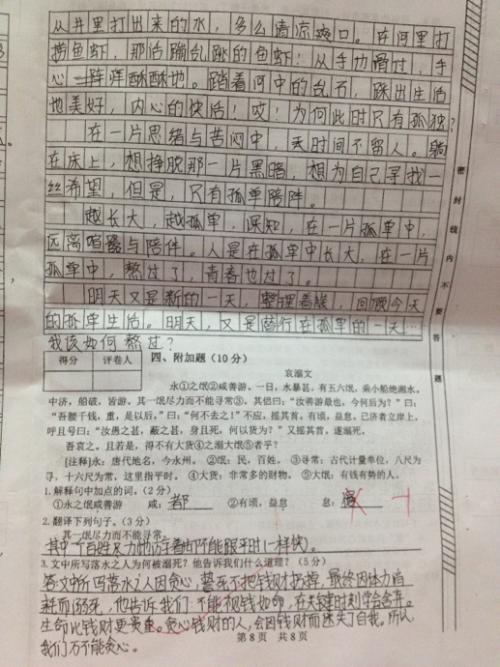 从井里打出来的水，多么清凉爽口。在河里打
捞鱼虾，那活蹦乱跳的鱼虾！从手边滑过，手
心一阵痒酥酥地。踏着河中的乱石，踩出生活
地美好，内心的快活！哎！为何此时只有孤独？
在一片思绪与苦闷中，丢时间不留人。躺
在床上，想挣脱那一片黑暗，想为自己寻找一
丝希望，但是，只有孤单陪伴。
越长大，越孤单，深知，在一片孤单中，
远离喧嚣与陪伴。人是在孤单中长大，在一片
孤单中，熬过了，青春也过了。
明天又是新的一天，整理着，回味今天
的孤单生活。明天，又是前行在孤单的一天…
我该如何熬过？
得分 评卷人 四、附加题(10分)
哀溺文
永①之氓②咸善游。一日，水暴甚，有五六氓，乘小船绝湘水。
中济，船破，皆游。其一氓尽力而不能寻常③，其侣曰：“汝善游最也，今何后为？”曰：
“吾腰千钱，重，是以后。”曰：“何不去之！”不应，摇其首。有顷，益怠。已济者立岸上，
呼且号曰：“汝愚之甚，蔽之甚，身且死，何以货为？”又摇其首，遂溺死。
吾哀之。且若是，得不有大货④之溺大氓⑤者乎？
[注释]永：唐代地名，今永州。 ②氓：民，百姓。 ③寻常：古代计量单位，八尺为
寻，十六尺为常，这里指平时。 ④大货：非常多的财物。 ⑤大氓：有钱有势的人。
1.解释句中加点的词。(2分)
①永之氓咸善游 咸：都 ②有顷，益怠 怠：
2.翻译下列句子。(3分)
其一氓尽力而不能寻常。
其中一个百姓尽力地游着却不能跟平时(一样快)。
3.文中所写落水之人为何被溺死？他告诉我们什么道理？(5分)
答文中所写落水之人因贪心，誓死不把钱财扔掉，最终因体力消
耗而溺死，他告诉我们：不能视钱如命，在关键时刻学会舍弃。
生命比钱财更贵重。贪心钱财的人，会因钱财而迷失了自我。所以
我们万不能贪心。
第8页 共8页
密封线内不要答题